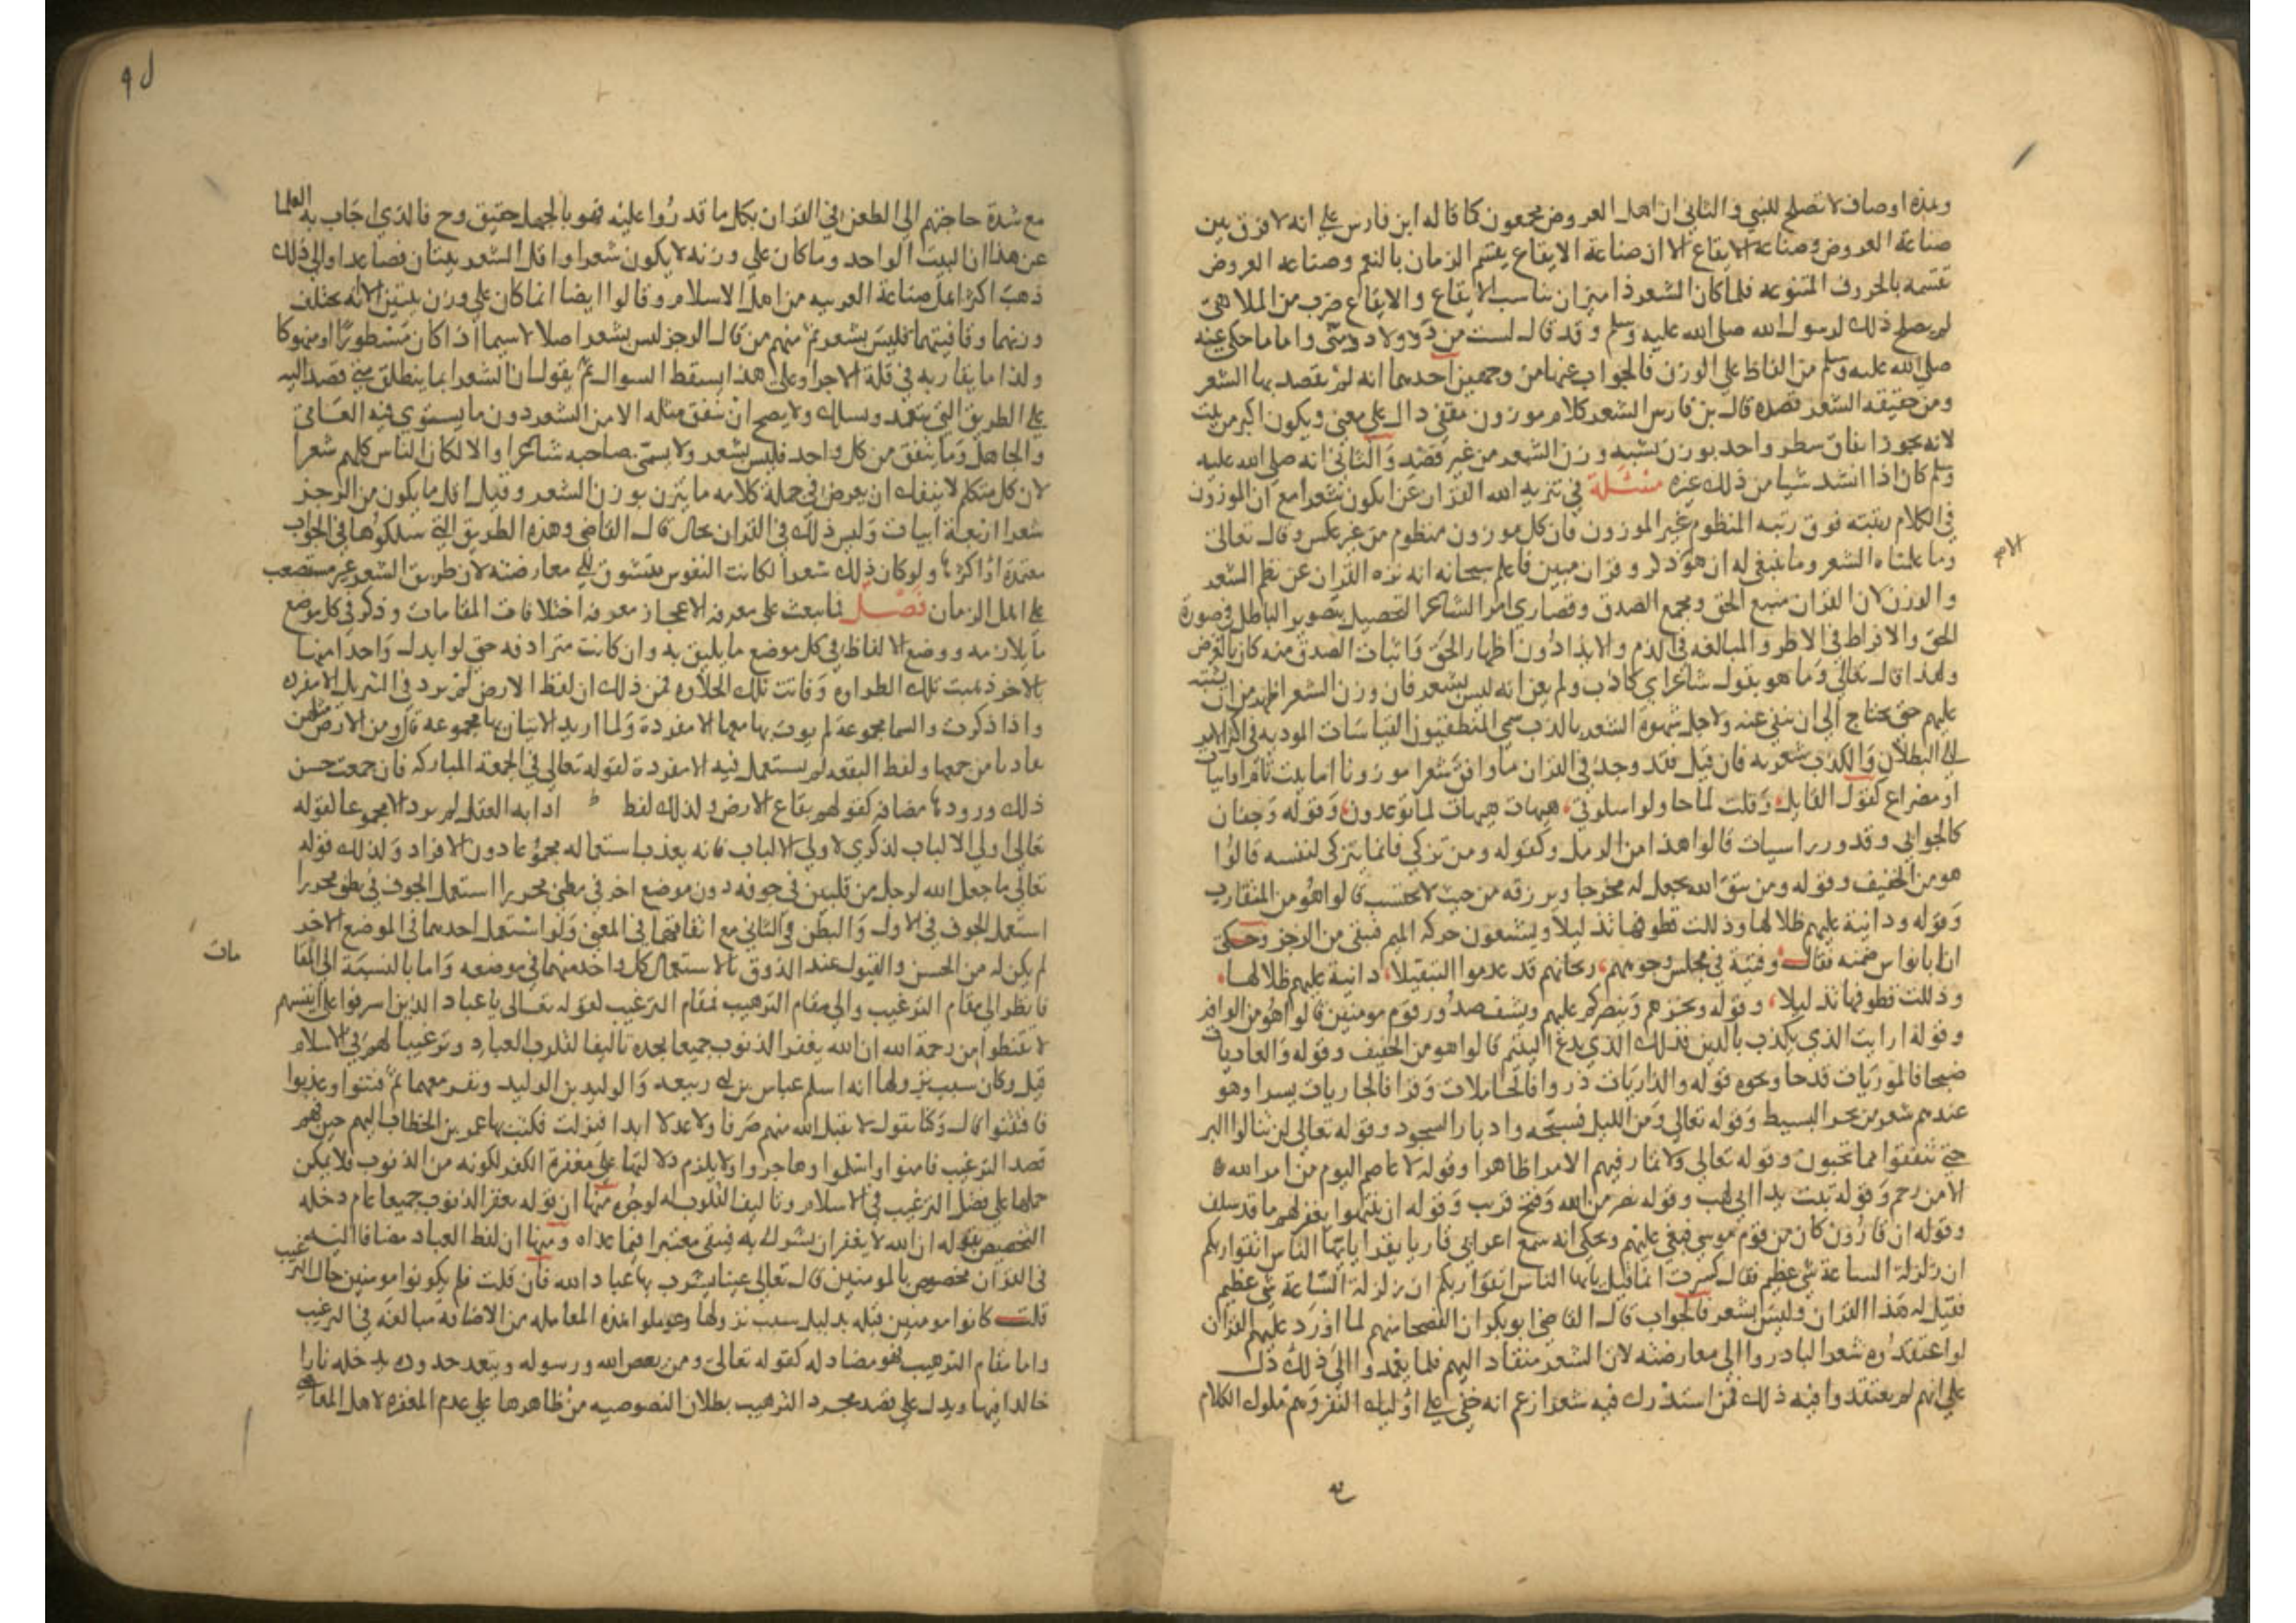 وهذه اوصاف لا تصلح للنبي والثاني ان اهل العروض مجمعون كما قاله ابن فارس على انه لا فرق بين
صناعة العروض وصناعة الايقاع الا ان صناعة الايقاع يقسم الزمان بالنغم وصناعه العروض
تقسمه بالحروف المتنوعه فلما كان الشعر ذا ميزان يناسب الايقاع والايقاع ضرب من الملاهي
لم يصلح ذلك لرسول الله صلى الله عليه وسلم وقد قال لست من دد ولا دد منى واما ما حكي عنه
صلى الله عليه وسلم من الفاظ على الوزن فالجواب عنها من وجهين احدهما انه لم يقصد بها الشعر
ومن حقيقه الشعر قصده قال بن فارس الشعر كلام موزون مقفى دال على معنى ويكون اكبر من بيت
لانه يجوز اتفاق سطر واحد بوزن يشبه وزن الشعر من غير قصد والثاني انه صلى الله عليه
وسلم كان اذا انشد شيا من ذلك غيره مسئلة في تنزيه الله القران عن ان يكون شعرا مع ان الموزون
في الكلام رتبته فوق رتبه المنظوم غير الموزون فان كل موزون منظوم من غير عكس وقال تعالى
وما علمناه الشعر وما ينبغي له ان هو ذكر وقران مبين فاعلم سبحانه انه نزه القران عن نظم الشعر
والوزن لان القران منبع الحق ومجمع الصدق وقصارى امر الشاعر التحصيل بتصوير الباطل في صورة
الحق والافراط في الاطر والمبالغه في الذم والايذا دون اظهار الحق واثبات الصدق منه كان بالعرض
ولهذا قال تعالى وما هو بقول شاعر اي كاذب ولم يعن انه ليس بشعر فان وزن الشعر اظهر من ان يشتبه
عليهم حتى يحتاج الى ان ينفى عنه ولاجل شهرة الشعر بالكذب سمى المنطقيون القياسات الموديه في اكثر الامر
الى البطلان والكذب شعريه فان قيل فقد وجد في القران ما وافق شعرا موزونا اما بيت تام او ابيات
او مصراع كقول القايل وقلت لما حاولوا سلوتي هيهات هيهات لما توعدون وقوله وجفان
كالجوابي وقدور راسيات قالوا هذا من الرمل وكقوله ومن تزكى فانما يتزكى لنفسه قالوا
هو من الخفيف وقوله ومن يتق الله يجعل له مخرجا ويرزقه من حيث لا يحتسب قالوا هو من المتقارب
وقوله ودانية عليهم ظلالها وذللت قطوفها تذليلا ويشبعون حركه الميم فيبقى من الرجز وحكي
ان ابا نواس ضمنه فقال وفتية في مجلس وجوههم ريحانهم قد عدموا التثقيلا دانية عليهم ظلالها
وذللت قطوفها تذليلا وقوله ويخزهم وينصركم عليهم ويشف صدور قوم مومنين قالوا هو من الوافر
وقوله ارايت الذي يكذب بالدين فذلك الذي يدع اليتيم قالوا هو من الخفيف وقوله والعاديات
ضبحا فالموريات قدحا ونحوه قوله والذاريات ذروا فالحاملات وقرا فالجاريات يسرا وهو
عندهم شعر من بحر البسيط وقوله تعالى ومن الليل فسبحه وادبار السجود وقوله تعالى لن تنالوا البر
حتى تنفقوا مما تحبون وقوله تعالى ولا تمار فيهم الا مرا ظاهرا وقوله لا عاصم اليوم من امر الله
الا من رحم وقوله تبت يدا ابي لهب وقوله نصر من الله وفتح قريب وقوله ان ينتهوا يغفر لهم ما قد سلف
وقوله ان قارون كان من قوم موسى فبغى عليهم ويحكى انه سمع اعرابي قاريا يقرا يايها الناس اتقوا ربكم
ان زلزلة الساعة شي عظيم فقال كسرت انما قيل يايها الناس اتقوا ربكم ان زلزلة الساعة شي عظيم
فقيل له هذا القران وليس بشعر فالجواب قال القاضي ابو بكر ان الفصحا منهم لما اورد عليهم القران
لو اعتقدوه شعرا لبادروا الى معارضته لان الشعر منقاد اليهم فلما لم يعمدوا الى ذلك دل
على انهم لم يعتقدوا فيه ذلك فمن استدرك فيه شعرا زعم انه خفي على اوليك النفر وهم ملوك الكلام
مع شدة حاجتهم الى الطعن في القران بكل ما قدروا عليه فهو بالجهل حقيق وح فالذي اجاب به العلما
عن هذا ان البيت الواحد وما كان على وزنه لا يكون شعرا واقل الشعر بيتان فصاعدا والى ذلك
ذهب اكثر اهل صناعة العربيه من اهل الاسلام وقالوا ايضا انما كان على وزن بيتين الا انه يختلف
وزنهما وقافيتهما فليس بشعر ثم منهم من قال الرجز ليس بشعر اصلا لا سيما اذا كان مشطورا او منهوكا
ولذا ما يقاربه في قلة الاجزا وعلى هذا يسقط السوال ثم يقول ان الشعر انما ينطلق متى قصد اليه
على الطريق التي تتعمد وتسلك ولا يصح ان يتفق مثله الا من الشعر دون ما يستوي فيه العامي
والجاهل وما يتفق من كل واحد فليس بشعر ولا يسمى صاحبه شاعرا والا لكان الناس كلهم شعرا
لان كل متكلم لا ينفك ان يعرض في جملة كلامه ما يتزن بوزن الشعر وقيل اقل ما يكون من الرجز
شعرا اربعة ابيات وليس ذلك في القران بحال قال القاضي وهذه الطريق التي سلكوها في الجواب
معتمدة او اكثرها ولو كان ذلك شعرا لكانت النفوس تتشوق الى معارضته لان طريق الشعر غير مستصعب
على اهل الزمان فصل مما يبعث على معرفه الاعجاز معرفه اختلافات المقامات وذكر في كل موضع
ما يلازمه ووضع الالفاظ في كل موضع ما يليق به وان كانت مترادفه حتى لو ابدل واحدا منها
بالاخر ذهبت تلك الطلاوه وفاتت تلك الحلاوه فمن ذلك ان لفظ الارض لم ترد في التنزيل الا مفرده
واذا ذكرت والسما مجموعة لم يوت بها معها الا مفردة ولما اريد الاتيان بها مجموعه قال ومن الارض مثلهن
تفاديا من جمعها ولفظ البقعه لم يستعمل فيه الا مفردة لقوله تعالى في البقعة المباركه فان جمعت حسن
ذلك ورودها مضافه كقولهم بقاع الارض وكذلك لفظ اذا به العقل لم يرد الا مجموعا لقوله
تعالى اولي الالباب لذكرى لاولي الالباب فانه يعذب استعماله مجموعا دون الافراد وكذلك قوله
تعالى ما جعل الله لرجل من قلبين في جوفه دون موضع اخر في بطني محررا استعمل الجوف في بطني محررا
استعمل الجوف في الاول والبطن في الثاني مع اتفاقهما في المعنى ولو استعمل احدهما في الموضع الاخر
لم يكن له من الحسن والقبول عند الذوق ما لاستعمال كل واحد منهما في موضعه واما بالنسبة الى المقا
مات
فانظر الى مقام الترغيب والى مقام الترهيب فمقام الترغيب لقوله تعالى يا عباد الذين اسرفوا على انفسهم
لا تقنطوا من رحمة الله ان الله يغفر الذنوب جميعا تجده تاليفا لقلوب العباد وترغيبا لهم في الاسلام
قيل وكان سبب نزولها انه اسلم عباس بن ابي ربيعه والوليد بن الوليد ونفر معهما ثم فتنوا وعذبوا
فافتتنوا قال وكنا نقول لا يقبل الله منهم صرفا ولا عدلا ابدا فنزلت فكتب بها عمر بن الخطاب اليهم حين فهم
قصد الترغيب فامنوا واسلموا وهاجروا ولا يلزم دلالتها على مغفرة الكفر لكونه من الذنوب فلا يمكن
حملها على فضل الترغيب في الاسلام وتاليف القلوب له لوجوه منها ان قوله يغفر الذنوب جميعا عام دخله
التخصيص بقوله ان الله لا يغفر ان يشرك به فيبقى معتبرا فيما عداه ومنها ان لفظ العباد مضافا اليه
في القران مخصوص بالمومنين قال تعالى عينا يشرب بها عباد الله فان قلت فلم يكونوا مومنين حال الترغيب
قلت كانوا مومنين قبله بدليل سبب نزولها وعوملوا هذه المعامله من الاضافه مبالغه في الترغيب
واما مقام الترهيب فهو مضاد له كقوله تعالى ومن يعص الله ورسوله ويتعد حدوده يدخله نارا
خالدا فيها ويدل على قصد مجرد الترهيب بطلان النصوصيه من ظاهرها على عدم المغفره لاهل المعاصي